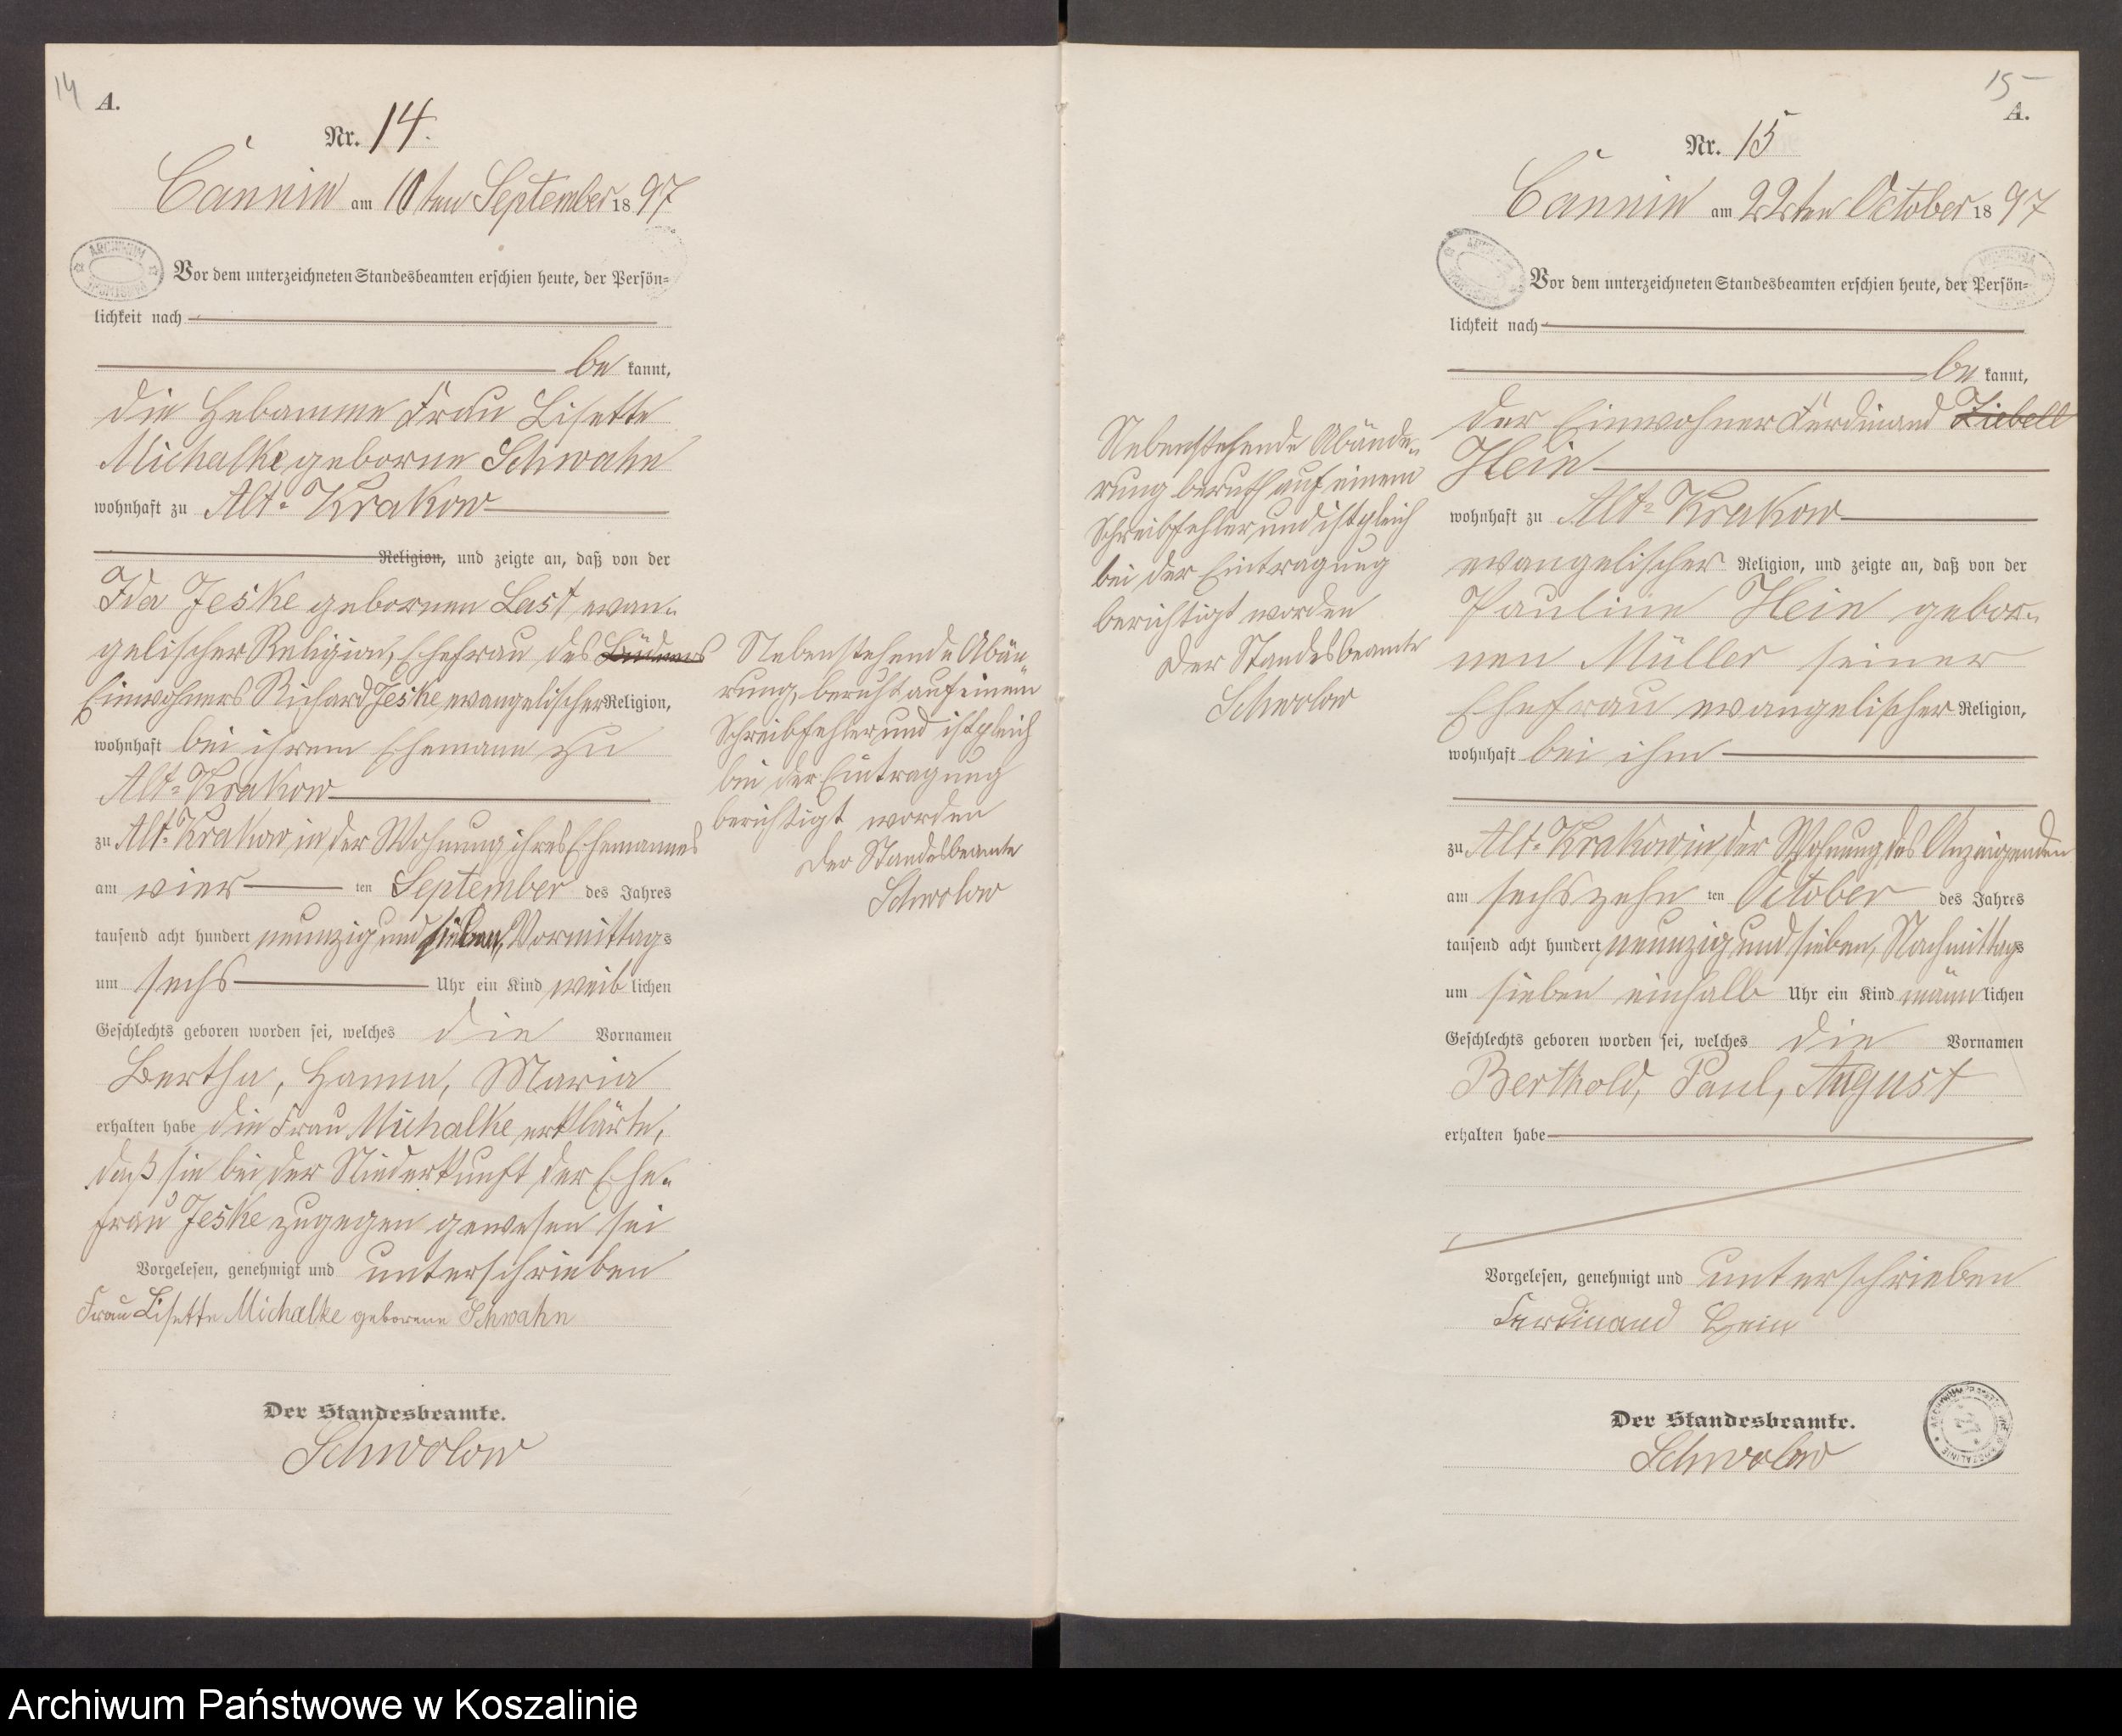 14
A.
Nr. 14.
Cannin am 10ten September 1897
ARCHIWUM
Vor dem unterzeichneten Standesbeamten erschien heute, der Persön=
lichkeit nach
be kannt,
die Hebamme Frau Lisette
Michalke geborne Schwahn
wohnhaft zu Alt=Krakow
Religion, und zeigte an, daß von der
Ida Jeske gebornen Last, evan=
gelischer Religion, Ehefrau des Büdners
Einwohners Richard Jeske, evangelischer Religion,
wohnhaft bei ihrem Ehemann zu
Alt=Krakow
zu Alt=Krakow in der Wohnung ihres Ehemannes
am vier ten September des Jahres
tausend acht hundert neunzig und sieben, Vormittags
um sechs Uhr ein Kind weiblichen
Geschlechts geboren worden sei, welches die Vornamen
Bertha, Hanna, Maria
erhalten habe die Frau Michalke erklärte,
daß sie bei der Niederkunft der Ehe=
frau Jeske zugegen gewesen sei
Vorgelesen, genehmigt und unterschrieben
Frau Lisette Michalke geborene Schwahn
Der Standesbeamte.
Schwolow
Nebenstehende Abän=
rung, beruht auf einem
Schreibfehler und ist gleich
bei der Eintragung
berichtigt worden
Der Standesbeamte
Schwolow
15
A.
Nr. 15
Cannin am 22ten October 1897
Vor dem unterzeichneten Standesbeamten erschien heute, der Persön=
lichkeit nach
be kannt,
der Einwohner Ferdinand Ziebell
Hein
wohnhaft zu Alt=Krakow
evangelischer Religion, und zeigte an, daß von der
Pauline Hein gebor=
nen Müller seiner
Ehefrau evangelischer Religion,
wohnhaft bei ihm
zu Alt=Krakow, in der Wohnung des Anzeigenden
am sechszehn ten October des Jahres
tausend acht hundert neunzig und sieben, Nachmittags
um sieben einhalb Uhr ein Kind männlichen
Geschlechts geboren worden sei, welches die Vornamen
Berthold, Paul, August
erhalten habe
Vorgelesen, genehmigt und unterschrieben
Ferdinand Hein
Der Standesbeamte.
Schwolow
Nebenstehende Abände=
rung beruht auf einem
Schreibfehler und ist gleich
bei der Eintragung
berichtigt worden
Der Standesbeamte
Schwolow
Archiwum Państwowe w Koszalinie